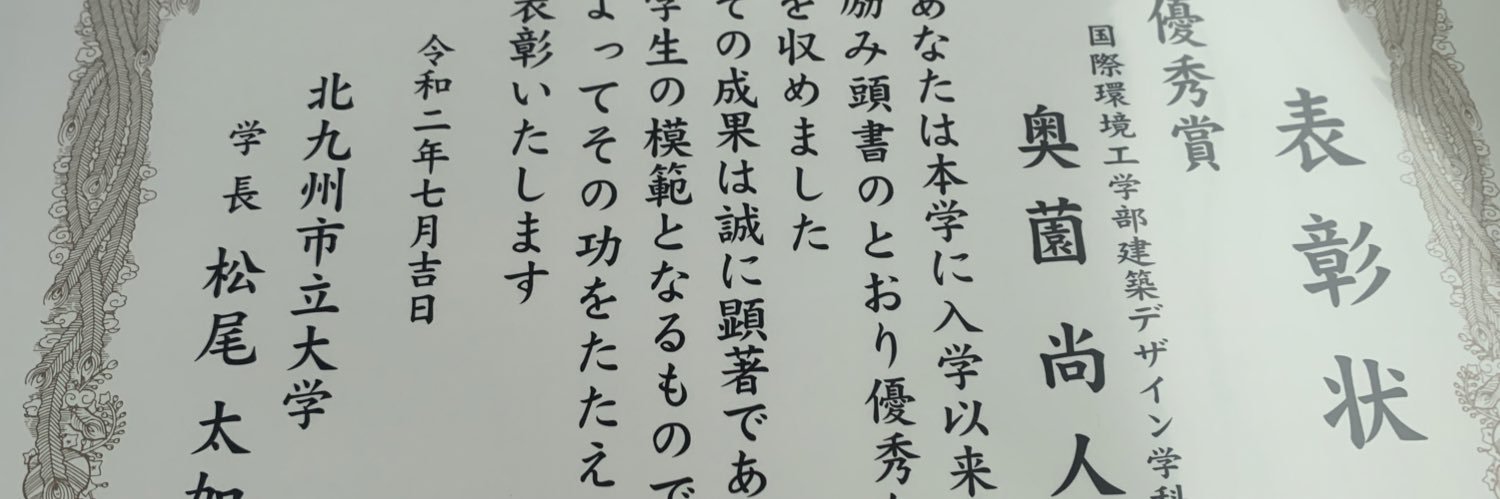 表彰状
優秀賞
国際環境工学部建築デザイン学科
奥薗尚人
あなたは本学に入学以来
励み頭書のとおり優秀
を収めました
その成果は誠に顕著であ
学生の模範となるもので
よってその功をたたえ
表彰いたします
令和二年七月吉日
北九州市立大学
学長 松尾太加